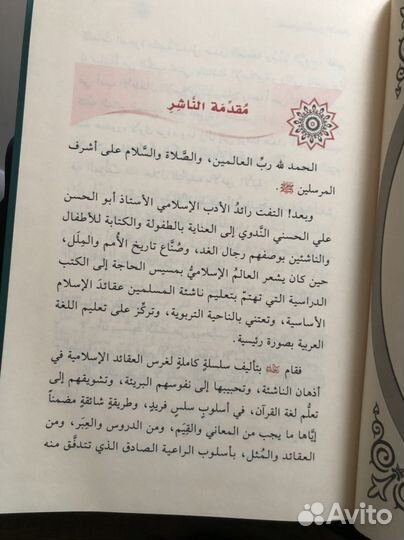 مُقدِّمَة النَّاشِرِ
الحمد لله ربِّ العالمين، والصَّلاة والسَّلام على أشرف
المرسلين ﷺ.
وبعد! التفت رائدُ الأدب الإسلامي الأستاذ أبو الحسن
علي الحسني النَّدوي إلى العناية بالطفولة والكتابة للأطفال
والناشئين بوصفهم رجال الغد، وصُنَّاع تاريخ الأُمم والمِلَل،
حين كان يشعر العالمُ الإسلاميُّ بمسيس الحاجة إلى الكتب
الدراسية التي تهتمّ بتعليم ناشئة المسلمين عقائدَ الإسلام
الأساسية، وتعتني بالناحية التربوية، وتركِّز على تعليم اللغة
العربية بصورة رئيسية.
فقام بتأليف سلسلةٍ كاملةٍ لغرس العقائد الإسلامية في
أذهان الناشئة، وتحبيبها إلى نفوسهم البريئة، وتشويقهم إلى
تعلُّم لغة القرآن، في أسلوبٍ سلسٍ فريدٍ، وطريقةٍ شائقةٍ مضمناً
إيَّاها ما يجب من المعاني والقِيَم، ومن الدروس والعِبَر، ومن
العقائد والمُثل، بأسلوب الراعية الصادق الذي تتدفَّق منه
Avito